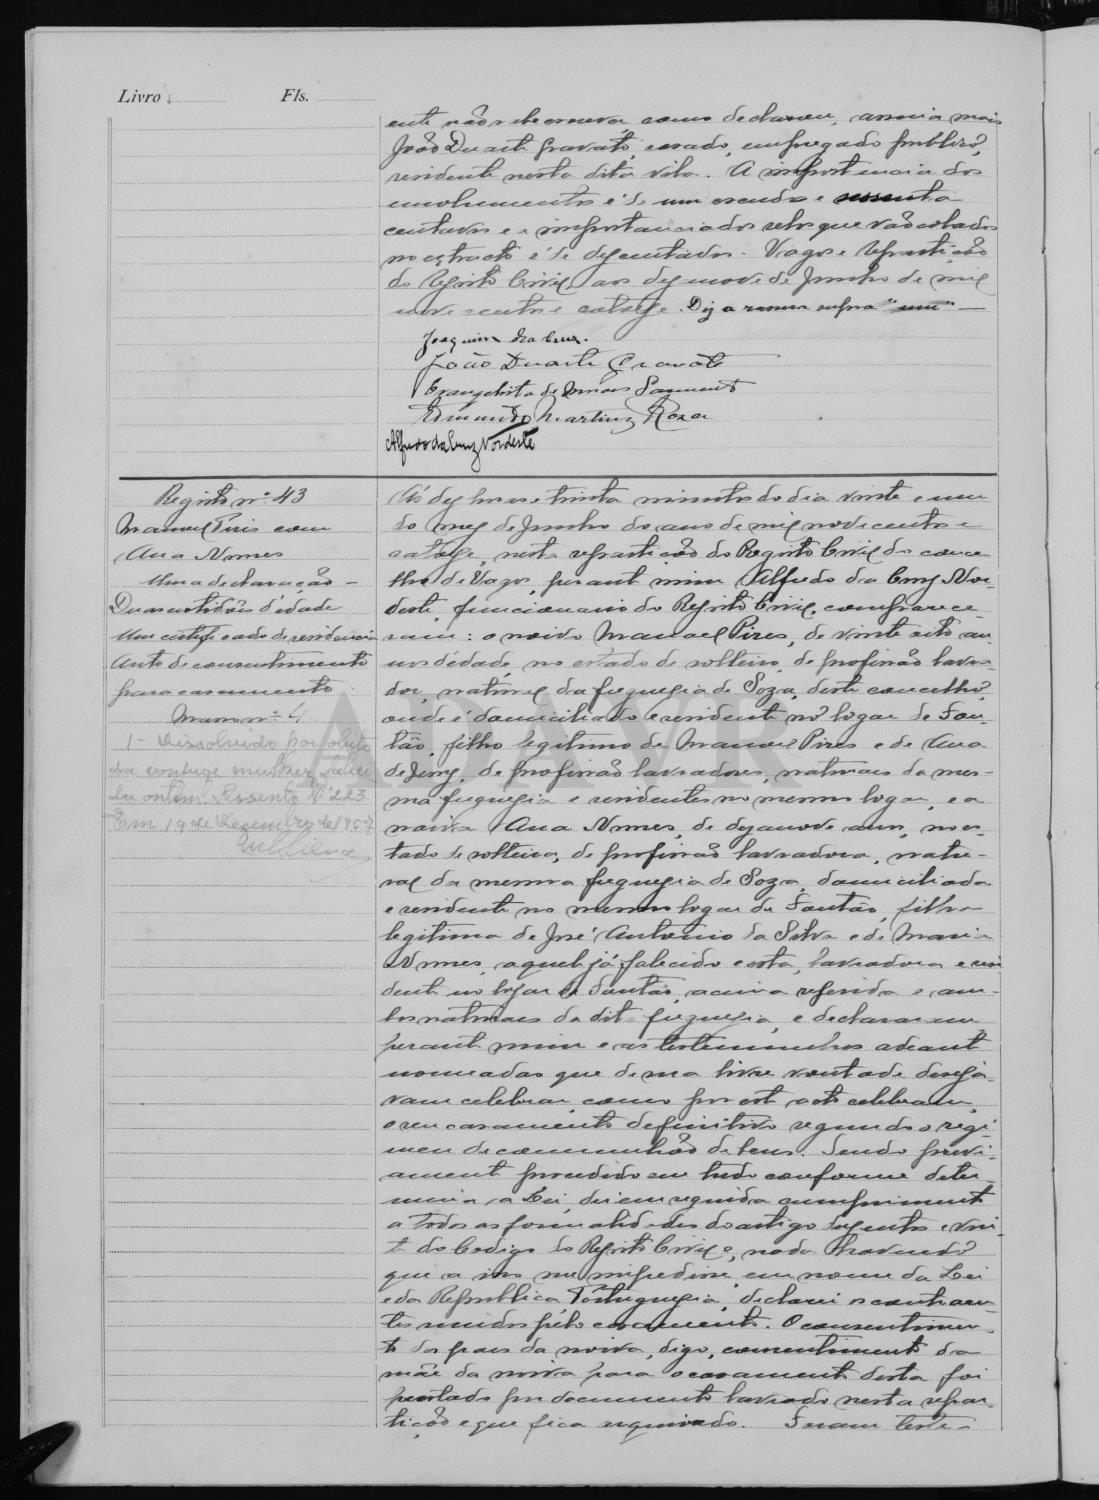 Livro Fls.
ente não escrever, como declarou, assina mais
João Duarte Gravato, casado, empregado publico,
residente nesta dita vila. A importancia dos
emolumentos é de um escudo e sessenta
centavos e a importancia dos selos que vão colados
no extracto é de dez centavos. Vagos e Repartição
do Registo Civil, aos dezenove de Junho de mil
nove centos e catorze. Diz a rasura supra "um" —
Joaquim da Cruz.
João Duarte Gravato
Evangelista de Moraes Sarmento
Edmundo Martins Rosa
Alfredo da Cruz Nordeste
Registo nº 43
Manuel Pires com
Ana Nunes
Uma declaração —
Duas certidões d'idade
Um certificado de residencia
Auto de consentimento
para casamento
Maço nº 4
1 - Dissolvido por obito
da conjuge mulher faleci
da ontem. Assento Nº 223.
Em 19 de Dezembro de 1967
Ás dez horas e trinta minutos do dia vinte e um
do mez de Junho do ano de mil nove centos e
catorze, nesta repartição do Registo Civil do conce
lho de Vagos, perante mim Alfredo da Cruz Nor
deste, funcionario do Registo Civil, comparece
ram: o noivo Manoel Pires, de vinte oito an
nos d'edade, no estado de solteiro, de profissão lavra-
dor, natural da freguezia de Soza, deste concelho,
onde é domiciliado e residente no logar de Fon
tão, filho legitimo de Manoel Pires e de Ana
de Jesus, de profissão lavradores, naturaes da mes-
ma freguezia e residentes no mesmo logar, e a
noiva Ana Nunes, de dezanove anos, no es-
tado de solteira, de profissão lavradora, natu-
ral da mesma freguezia de Soza, domiciliada
e residente no mesmo logar de Fontão, filha
legitima de José Antonio da Silva e de Maria
Nunes, aquele já falecido e esta, lavradora e resi
dente no logar de Fontão, acima referido e am-
bos naturaes da dita freguezia, e declararam
perante mim e as testemunhas adeante
nomeadas que de sua livre vontade deseja
vam celebrar, como por este acto celebram,
o seu casamento definitivo segundo o regi-
men de communhão de bens. Sendo previ-
amente procedido em tudo conforme deter-
mina a Lei, dei em seguida cumprimento
a todas as formalidades do artigo duzentos e vin-
te do Codigo do Registo Civil e, nada havendo
que a isso me impedisse, em nome da Lei
e da Republica Portugueza, declarei os contraen-
tes unidos pelo casamento. O consentimen-
to dos paes da noiva, digo, consentimento da
mãe da noiva para o casamento desta foi
prestado por documento lavrado nesta repar-
tição e que fica arquivado. Foram teste-
ADAVR